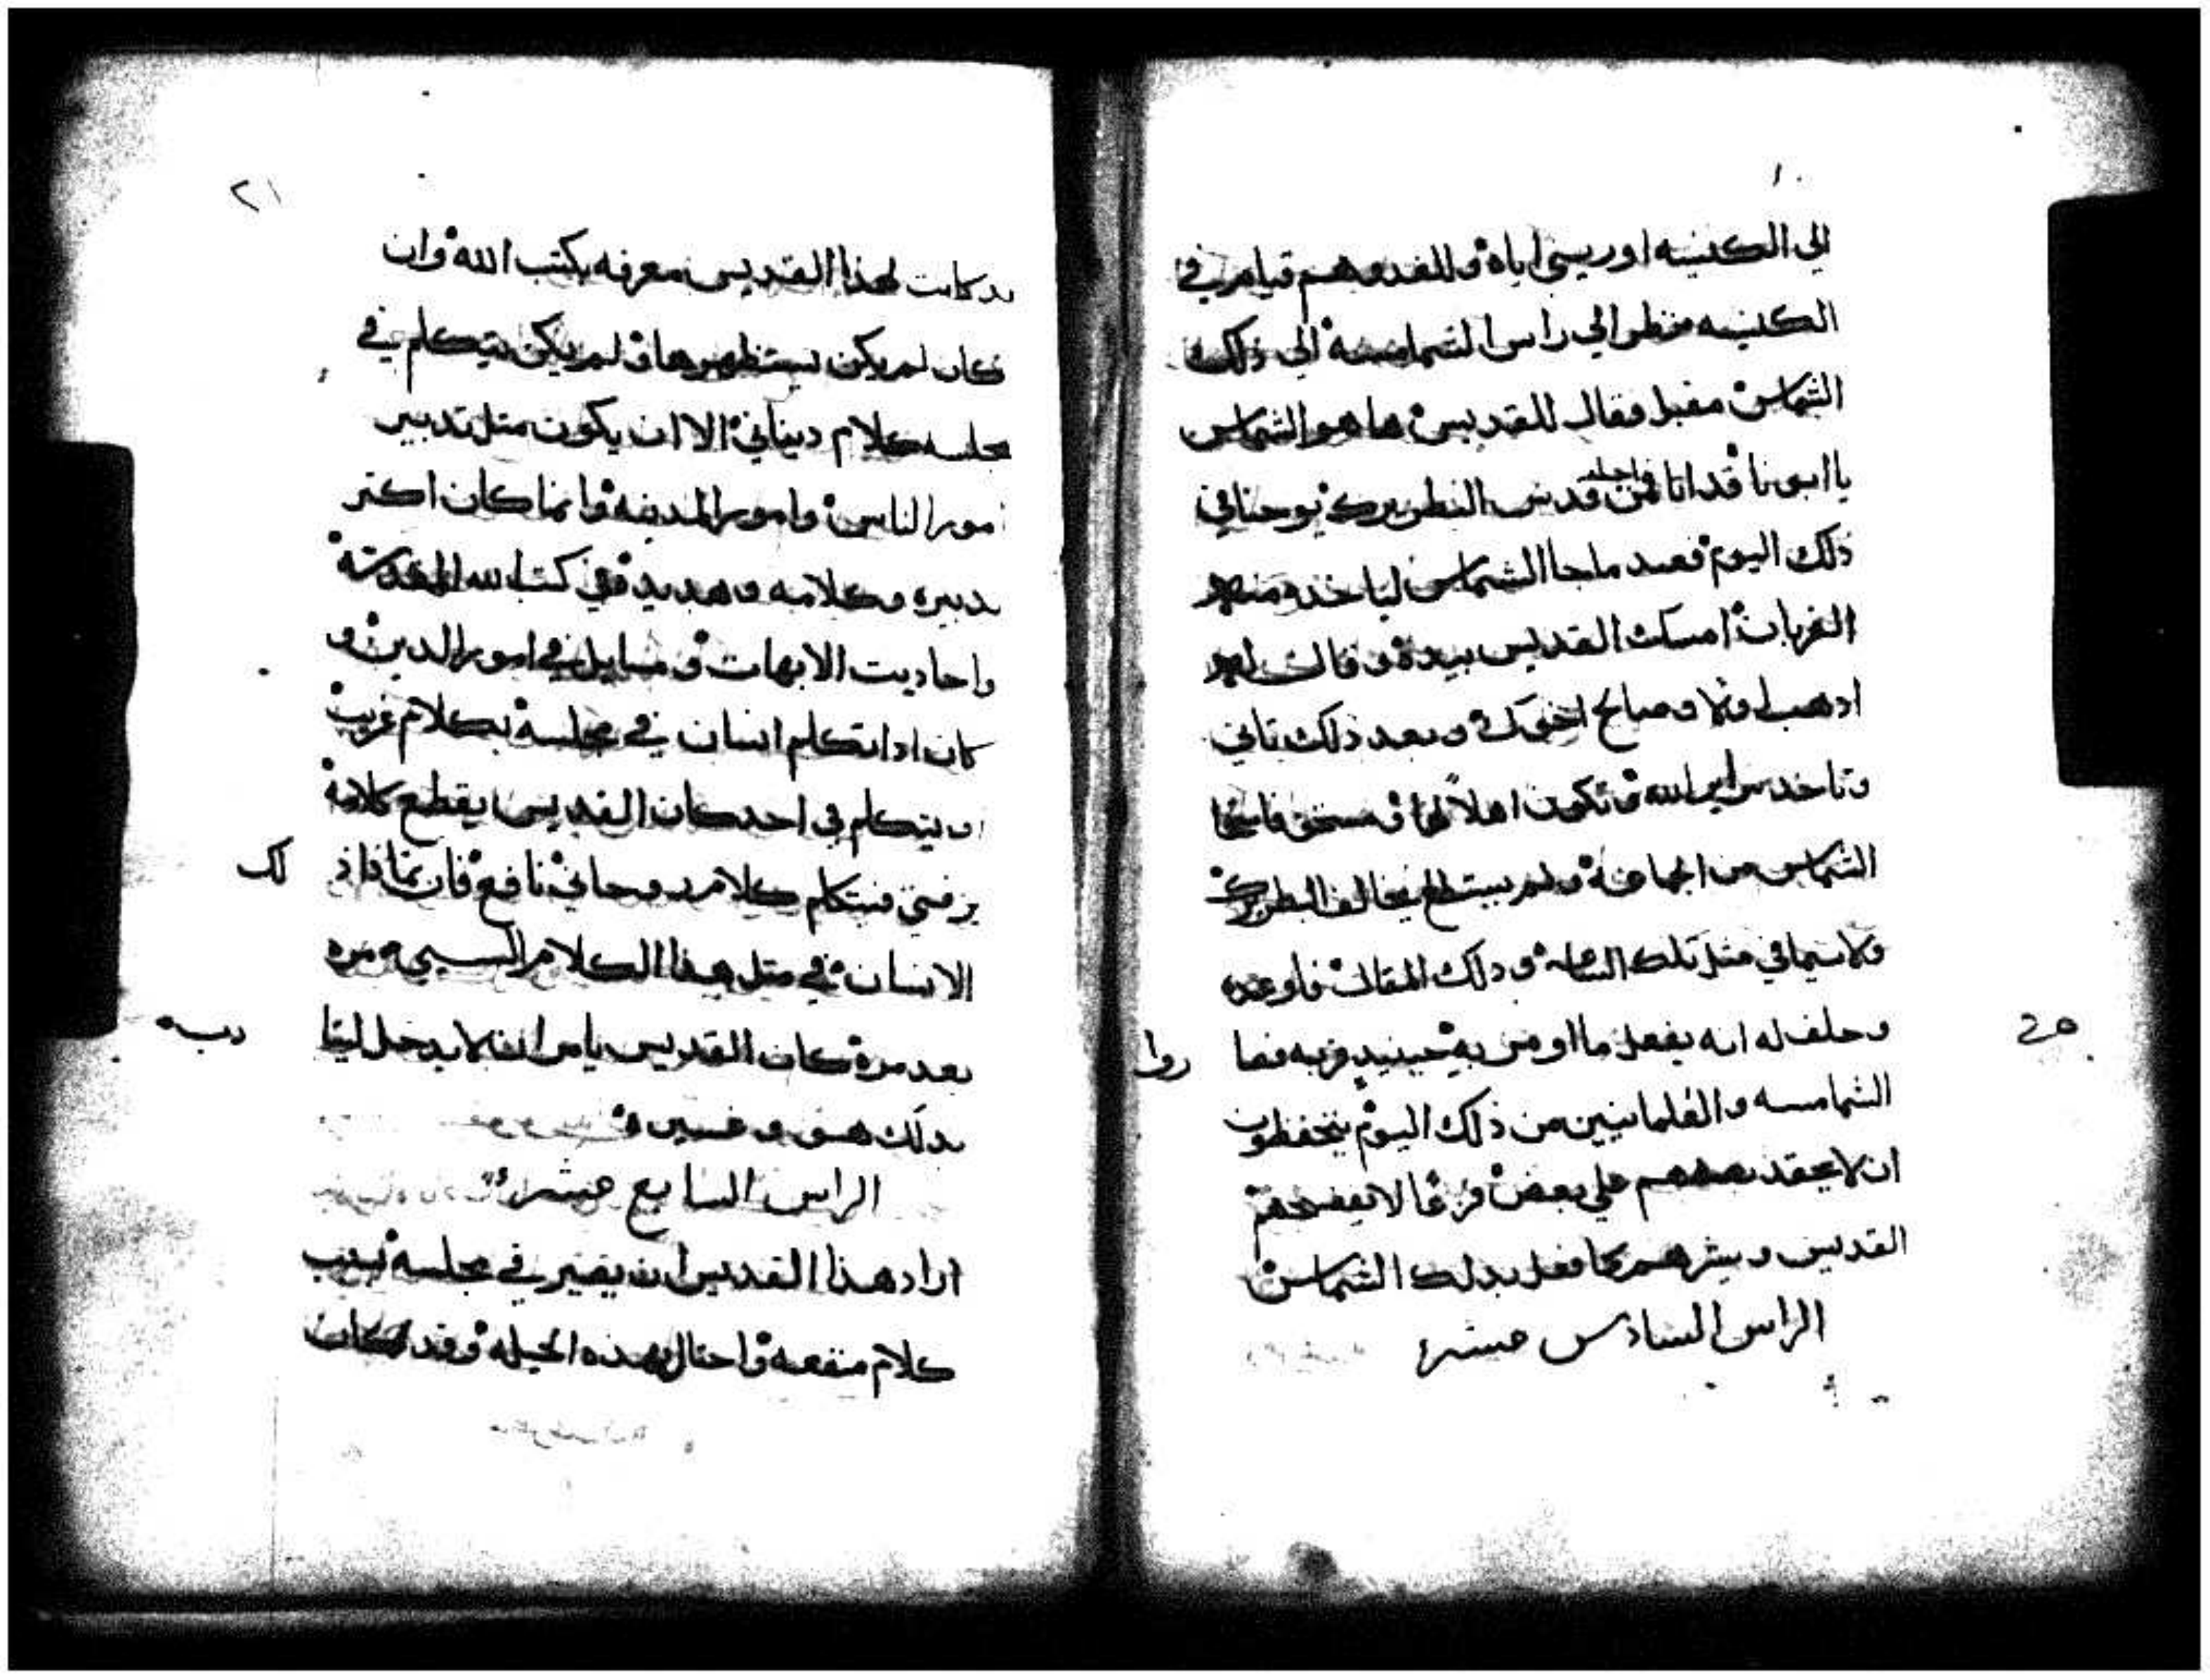 الي الكنيسه اوريسي اياه وللغد وهم قيام في
الكنيسه منظر الي راس الشمامسه الي ذلك
الشماس مقبل فقال للقديس ها هو الشماس
يا ابونا قد اتا فمن قدس البطريرك يوحنا في
ذلك اليوم فعند ما جا الشماس لياخذ منهم
القربان امسك القديس بيده وقال له
ادهب اولا وصالح اخوك وبعد ذلك تاتي
وتاخد سراير الله وتكون اهلا لها ومستحق فاستحا
الشماس من الجماعه ولم يستطع يخالف البطريرك
ولا سيما في مثل تلك الساعه ودلك المقال فاوعده
وحلف له انه يفعل ما اوصى به حينيد قربه فصا روا
الشمامسه والعلمانيين من ذلك اليوم يتحفظون
ان لا يحقد بعضهم علي بعض فزعا لا يفضحهم
القديس ويشرهم كما فعل بدلك الشماس
الراس السادس عشر
٢١
قد كانت لهذا القديس معرفه بكتب الله وان
كان لم يكن يستظهرها ولم يكن يتكلم في
مجلسه كلام دنياني الا ان يكون مثل تدبير
امور الناس وامور المدينه وانما كان اكتر
تدبيره وكلامه وهديده في كتب الله المقدسه
واحاديت الابهات ومسايل في امور الدين و
كان ادا تكلم انسان في مجلسه بكلام غريب
او يتكلم في احد كان القديس يقطع كلامه
برفق فيتكلم كلام روحاني نافع فان تمادا ذ لك
الانسان في متل هذا الكلام السمج مره
بعد مره كان القديس يامر انه لا يدخل ايضا
بدلك هو وغيره
الراس السابع عشر
اراد هذا القديس ان يصير في مجلسه بسبب
كلام منفعه واحتال بهذه الحيله وقد كان